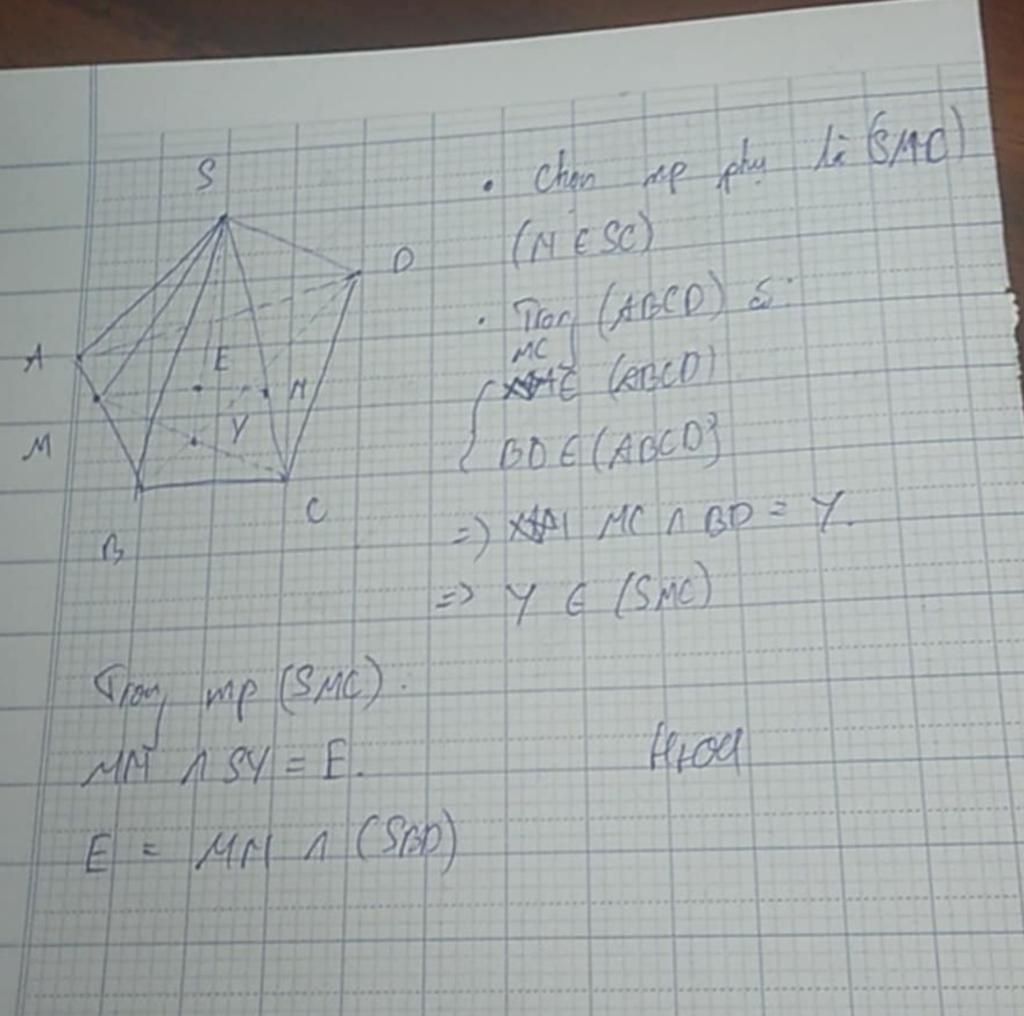 S
D
A
E
N
M
Y
C
B
• Chọn mp phụ là (SMC)
(N ∈ SC)
• Trong (ABCD) có:
MC ∈ (ABCD)
BD ∈ (ABCD}
=> MC ∩ BD = Y.
=> Y ∈ (SMC)
Trong mp (SMC).
MN ∩ SY = E.
E = MN ∩ (SBD)